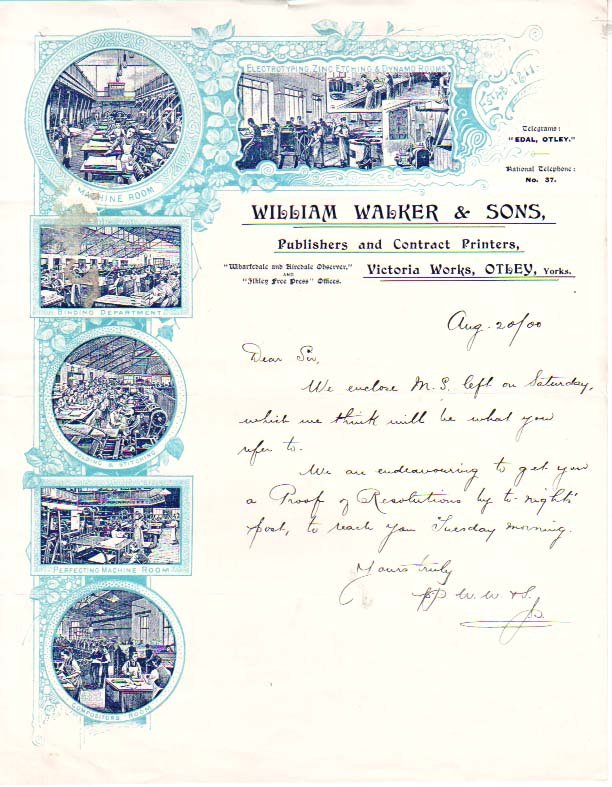 ELECTROTYPING, ZINC ETCHING & DYNAMO ROOMS
MACHINE ROOM
Telegrams:
"EDAL, OTLEY."
National Telephone:
No. 37.
WILLIAM WALKER & SONS,
Publishers and Contract Printers,
"Wharfedale and Airedale Observer,"
AND
"Ilkley Free Press" Offices.
Victoria Works, OTLEY, Yorks.
BINDING DEPARTMENT
FOLDING & STITCHING
PERFECTING MACHINE ROOM
COMPOSITORS ROOM
Aug. 20/00
Dear Sir,
We enclose M.S. left on Saturday,
which we think will be what you
refer to.
We are endeavouring to get you
a Proof of Resolutions by to-nights'
post, to reach you Tuesday morning.
Yours truly
pp W. W & S.